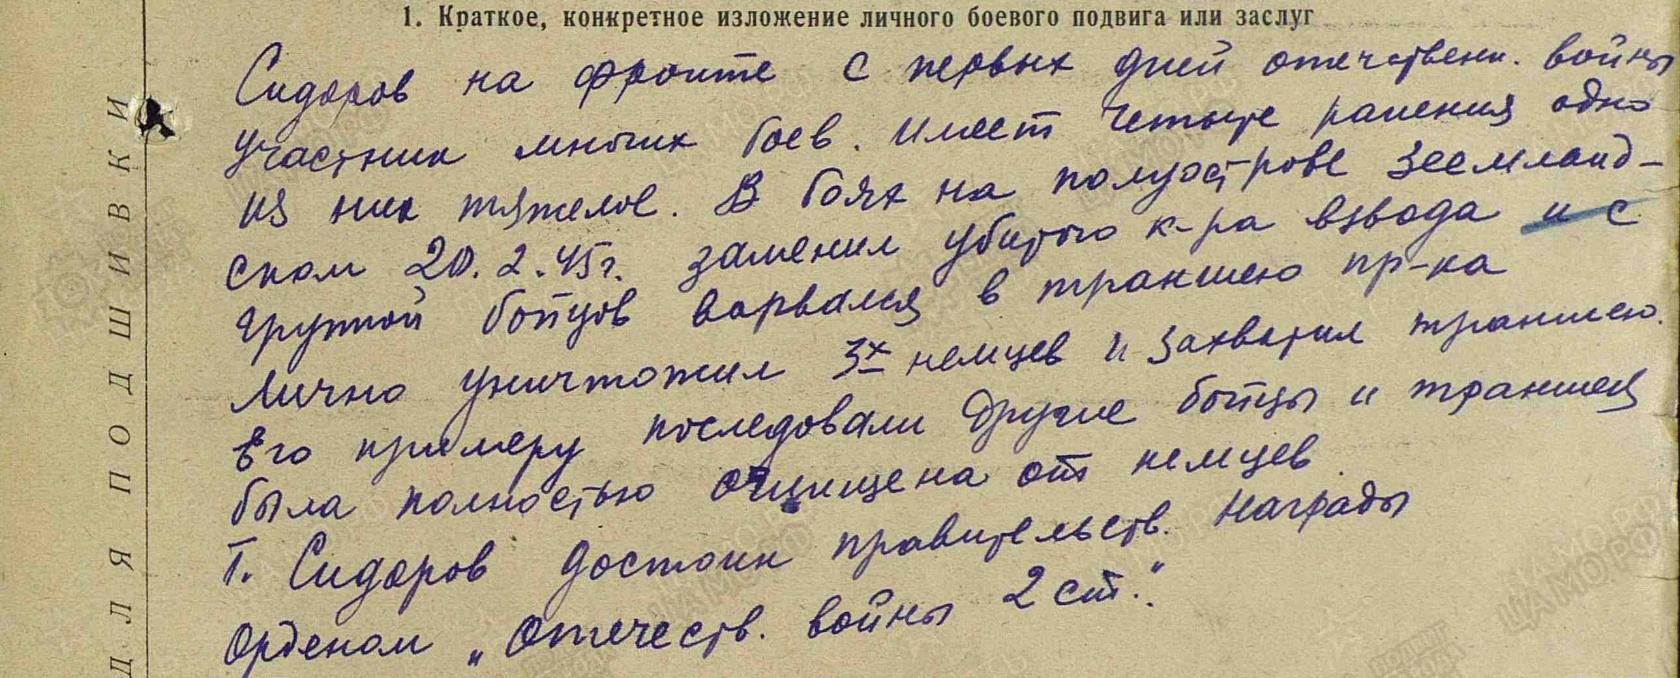 1. Краткое, конкретное изложение личного боевого подвига или заслуг
Сидоров на фронте с первых дней отечествен. войны
участник многих боев. Имеет четыре ранения одно
из них тяжелое. В боях на полуострове Зеемланд-
ском 20.2.45г. заменил убитого к-ра взвода и с
группой бойцов ворвался в траншею пр-ка
лично уничтожил 3х немцев и захватил траншею.
Его примеру последовали другие бойцы и траншея
была полностью очищена от немцев.
Т. Сидоров достоин правительств. награды
Орденом „Отечеств. войны 2 ст."
ДЛЯ ПОДШИВКИ